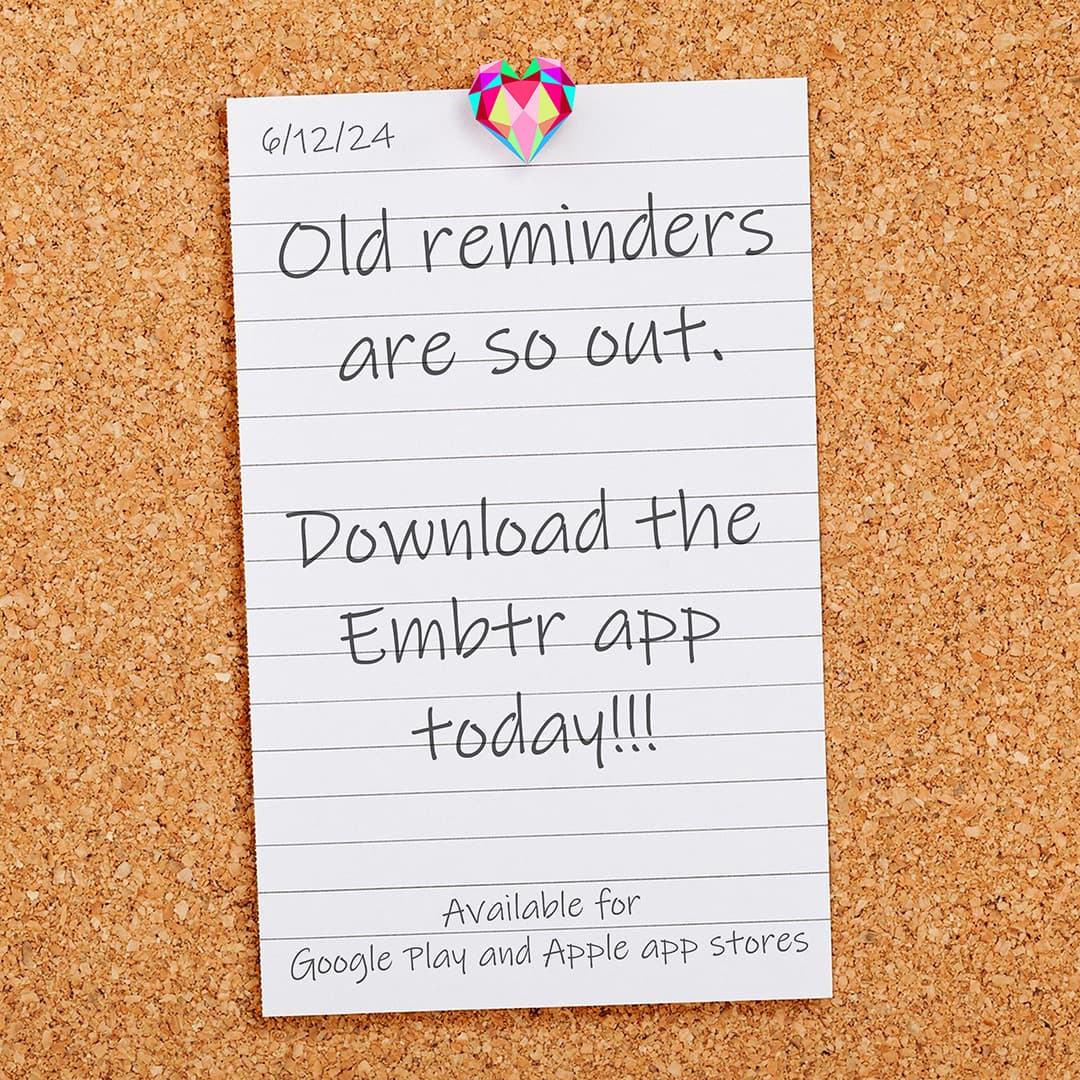 6/12/24
Old reminders
are so out.
Download the
Embtr app
today!!!
Available for
Google Play and Apple app stores